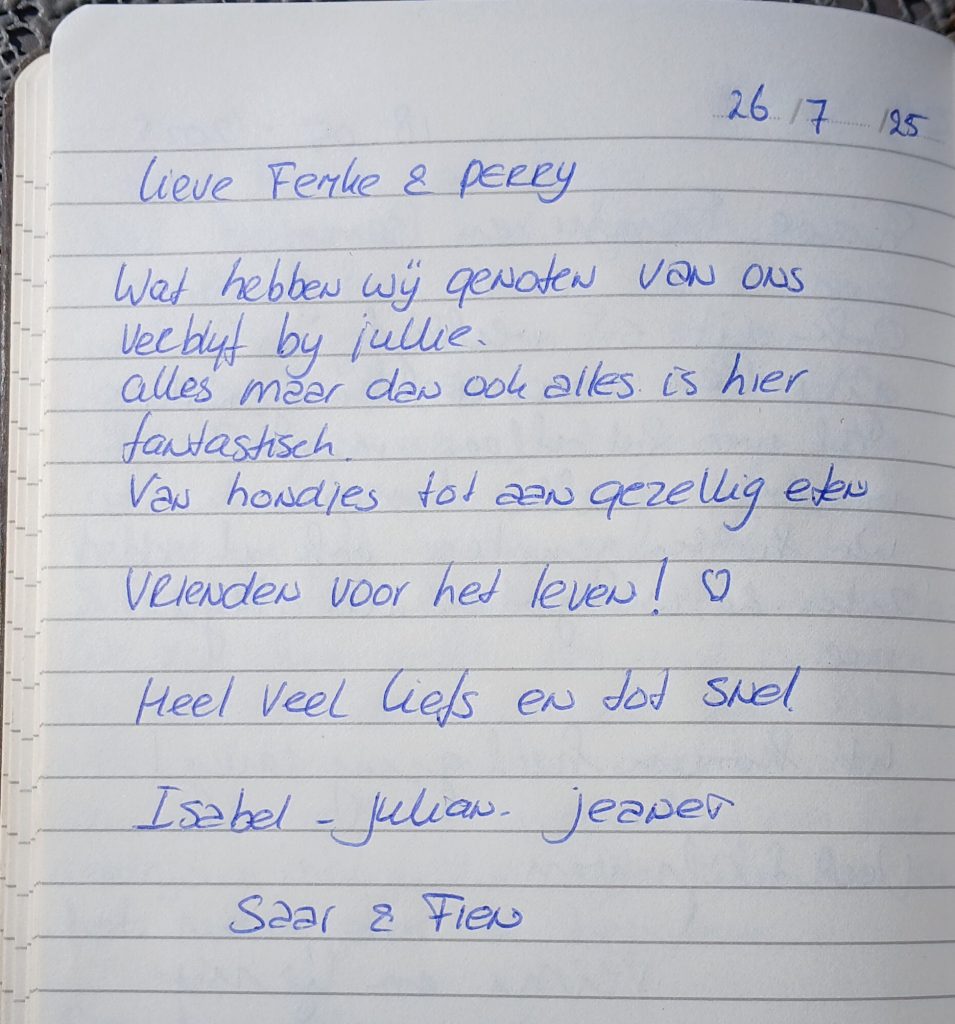 26/7/25
Lieve Femke & PERRY
Wat hebben wij genoten van ons
verblyf by jullie.
alles maar dan ook alles is hier
fantastisch.
Van hondjes tot aan gezellig eten
Vrienden voor het leven! ♡
Heel veel liefs en tot snel
Isabel - Julian - jeanet
Saar & Fien